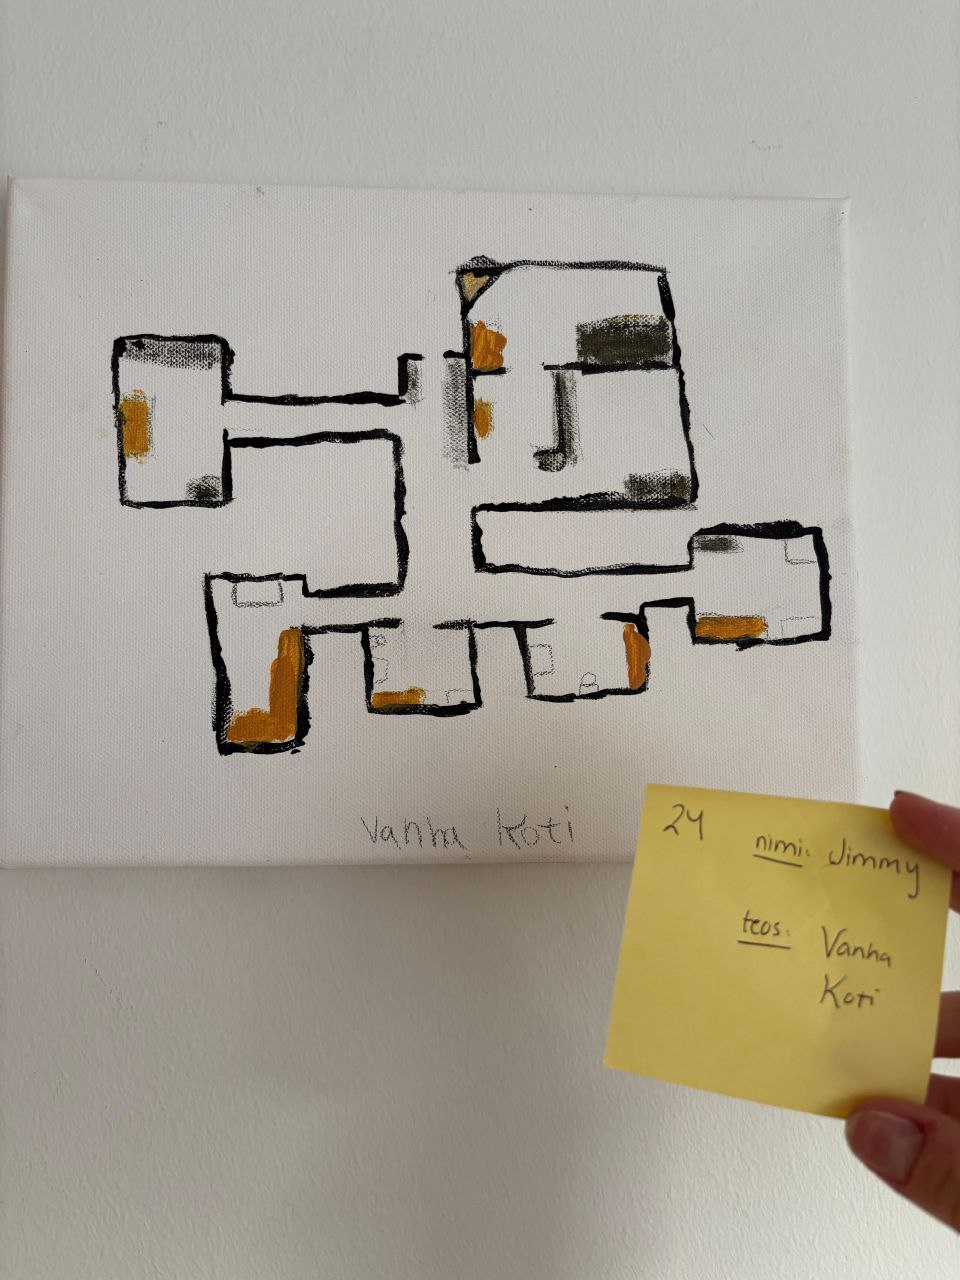 Vanha Koti
24
nimi: Jimmy
teos: Vanha
Koti